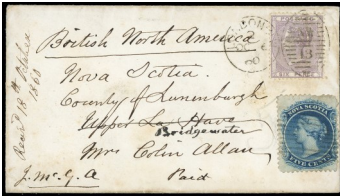 British North America
Nova Scotia
County of Lunenburgh
Upper La Have
Bridgewater
Mrs Colin Allan
Paid
J. Mc. G. A
Recd 18th
1860
NOVA SCOTIA
FIVE CENTS